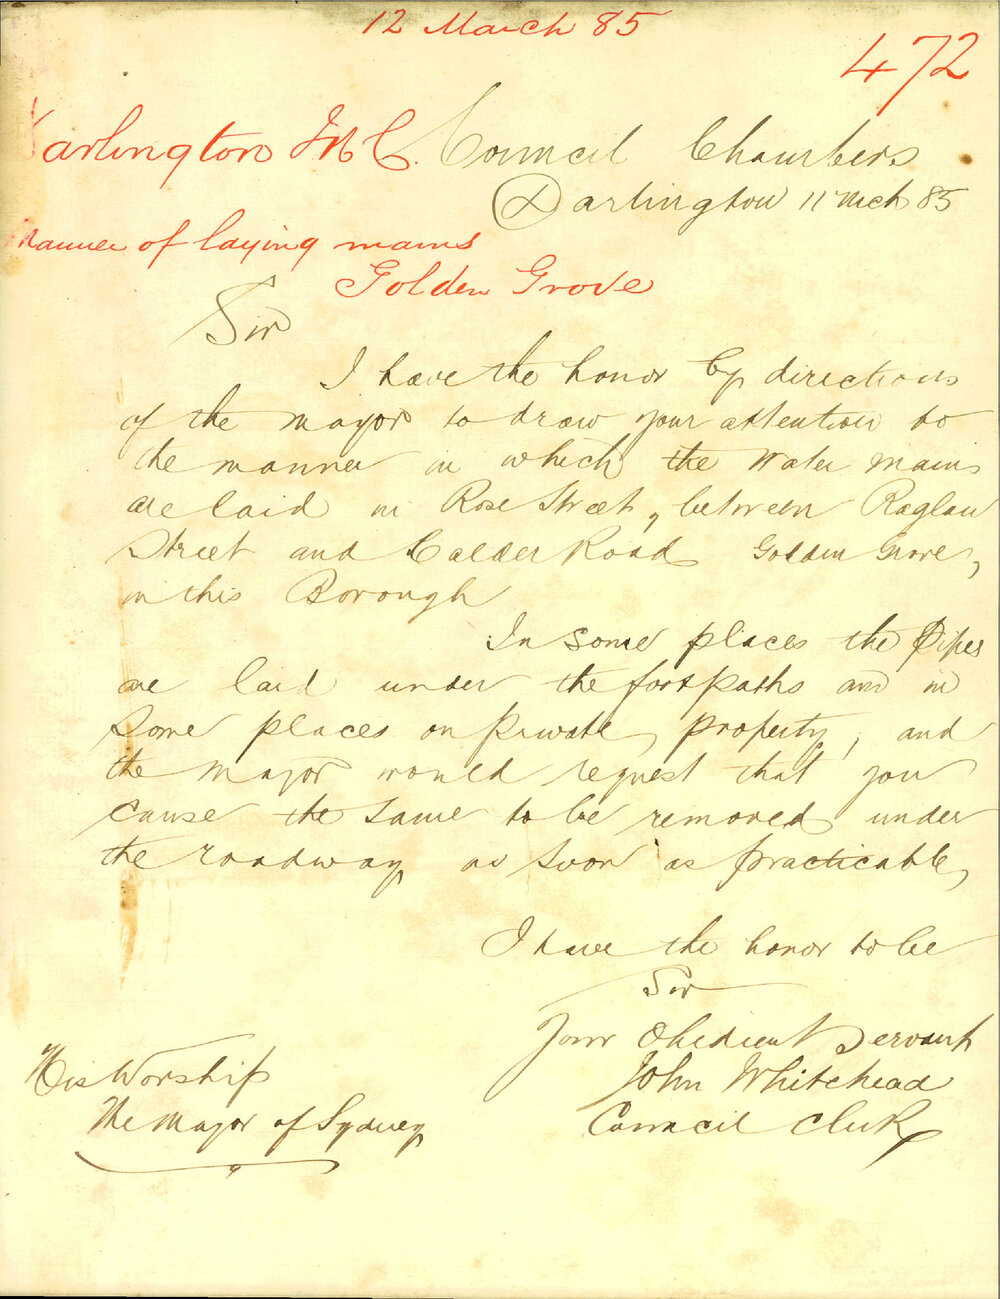 12 March 85
472
Darlington M C.
Council Chambers
Darlington 11 Mch 85
Manner of laying mains
Golden Grove
Sir
I have the honor by directions
of the Mayor to draw your attention to
the manner in which the Water mains
are laid in Rose Street, between Raglan
Street and Calder Road Golden Grove,
in this Borough
In some places the Pipes
are laid under the footpaths and in
some places on private property, and
the Mayor would request that you
cause the same to be removed under
the roadway as soon as practicable,
I have the honor to be
Sir
Your Obedient Servant
John Whitehead
Council Clerk
His Worship
The Mayor of Sydney